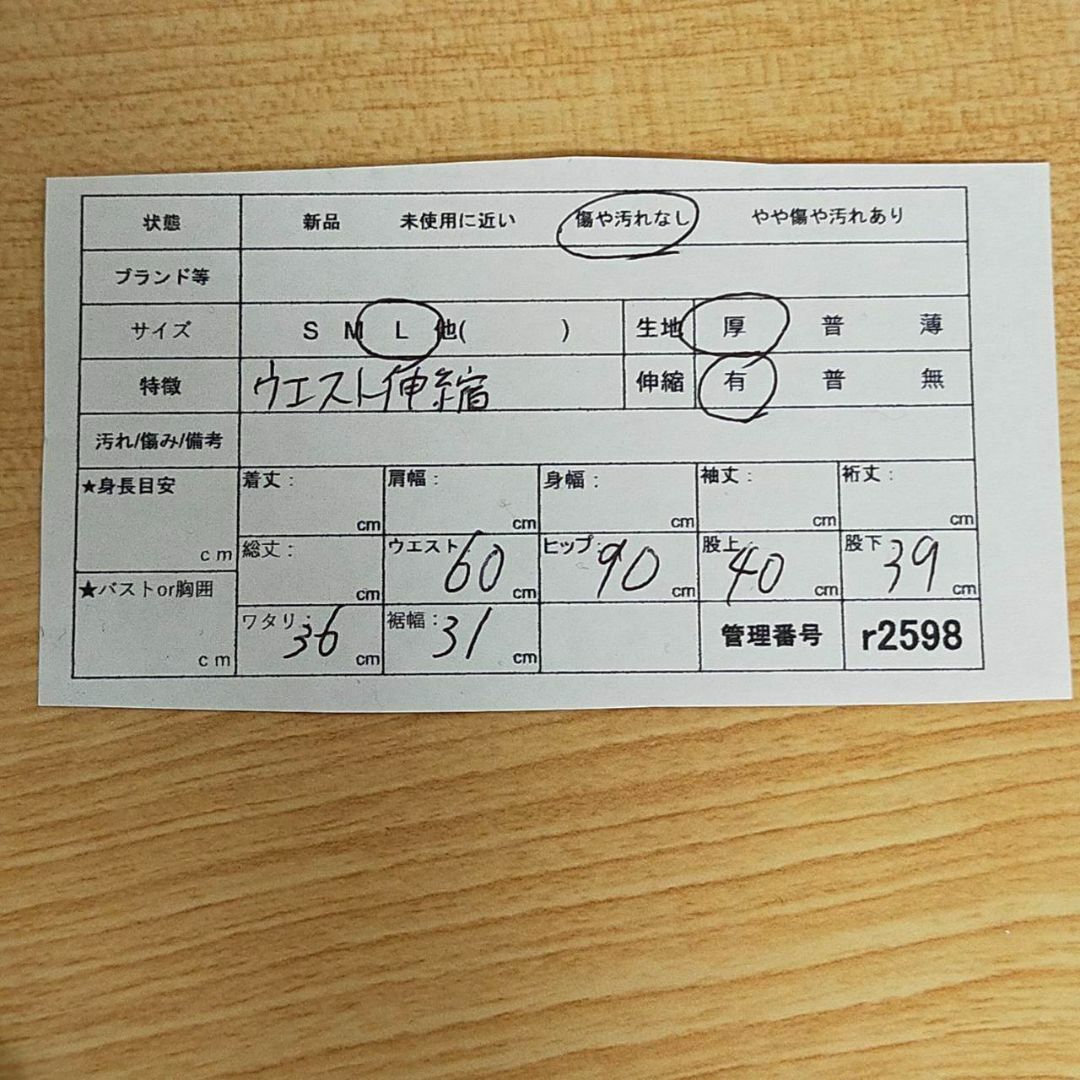 状態 新品 未使用に近い 傷や汚れなし やや傷や汚れあり
ブランド等
サイズ S M L 他( ) 生地 厚 普 薄
特徴 ウエスト伸縮 伸縮 有 普 無
汚れ/傷み/備考
★身長目安 cm 着丈: cm 肩幅: cm 身幅: cm 袖丈: cm 裄丈: cm
総丈: cm ウエスト 60 cm ヒップ: 90 cm 股上: 40 cm 股下 39 cm
★バストor胸囲 cm ワタリ: 36 cm 裾幅: 31 cm 管理番号 r2598